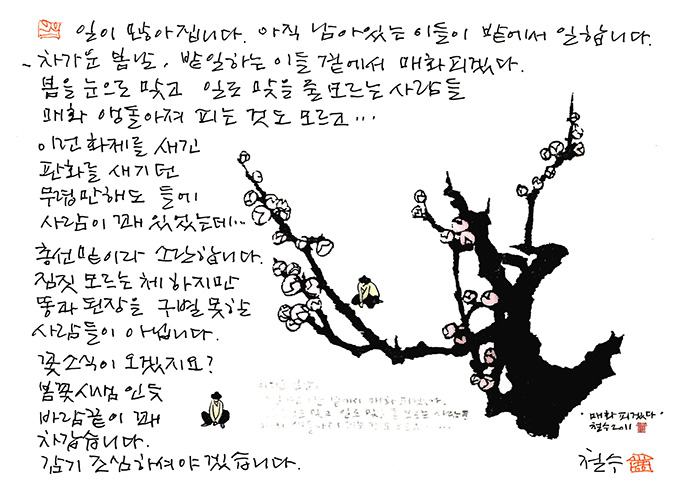 일이 많아집니다. 아직 남아있는 이들이 밭에서 일합니다.
~차가운 봄날, 밭일하는 이들 곁에서 매화 피겠다.
봄을 눈으로 맞고 일로 맞을 줄 모르는 사람들
매화 앵돌아져 피는 것도 모르고...
이런 화제를 새긴
판화를 새기던
무렵만해도 들에
사람이 꽤 있었는데...
총선 밑이라 소란합니다.
짐짓 모르는 체 하지만
똥과 된장을 구별 못한
사람들이 아닙니다.
꽃소식이 오겠지요?
봄꽃시샘인듯
바람끝이 꽤
차갑습니다.
감기 조심하셔야겠습니다.
곁에서 매화 피겠다.
맞고 일로 맞을 줄 모르는 사람들
'매화 피겠다'
철수 2011
철수